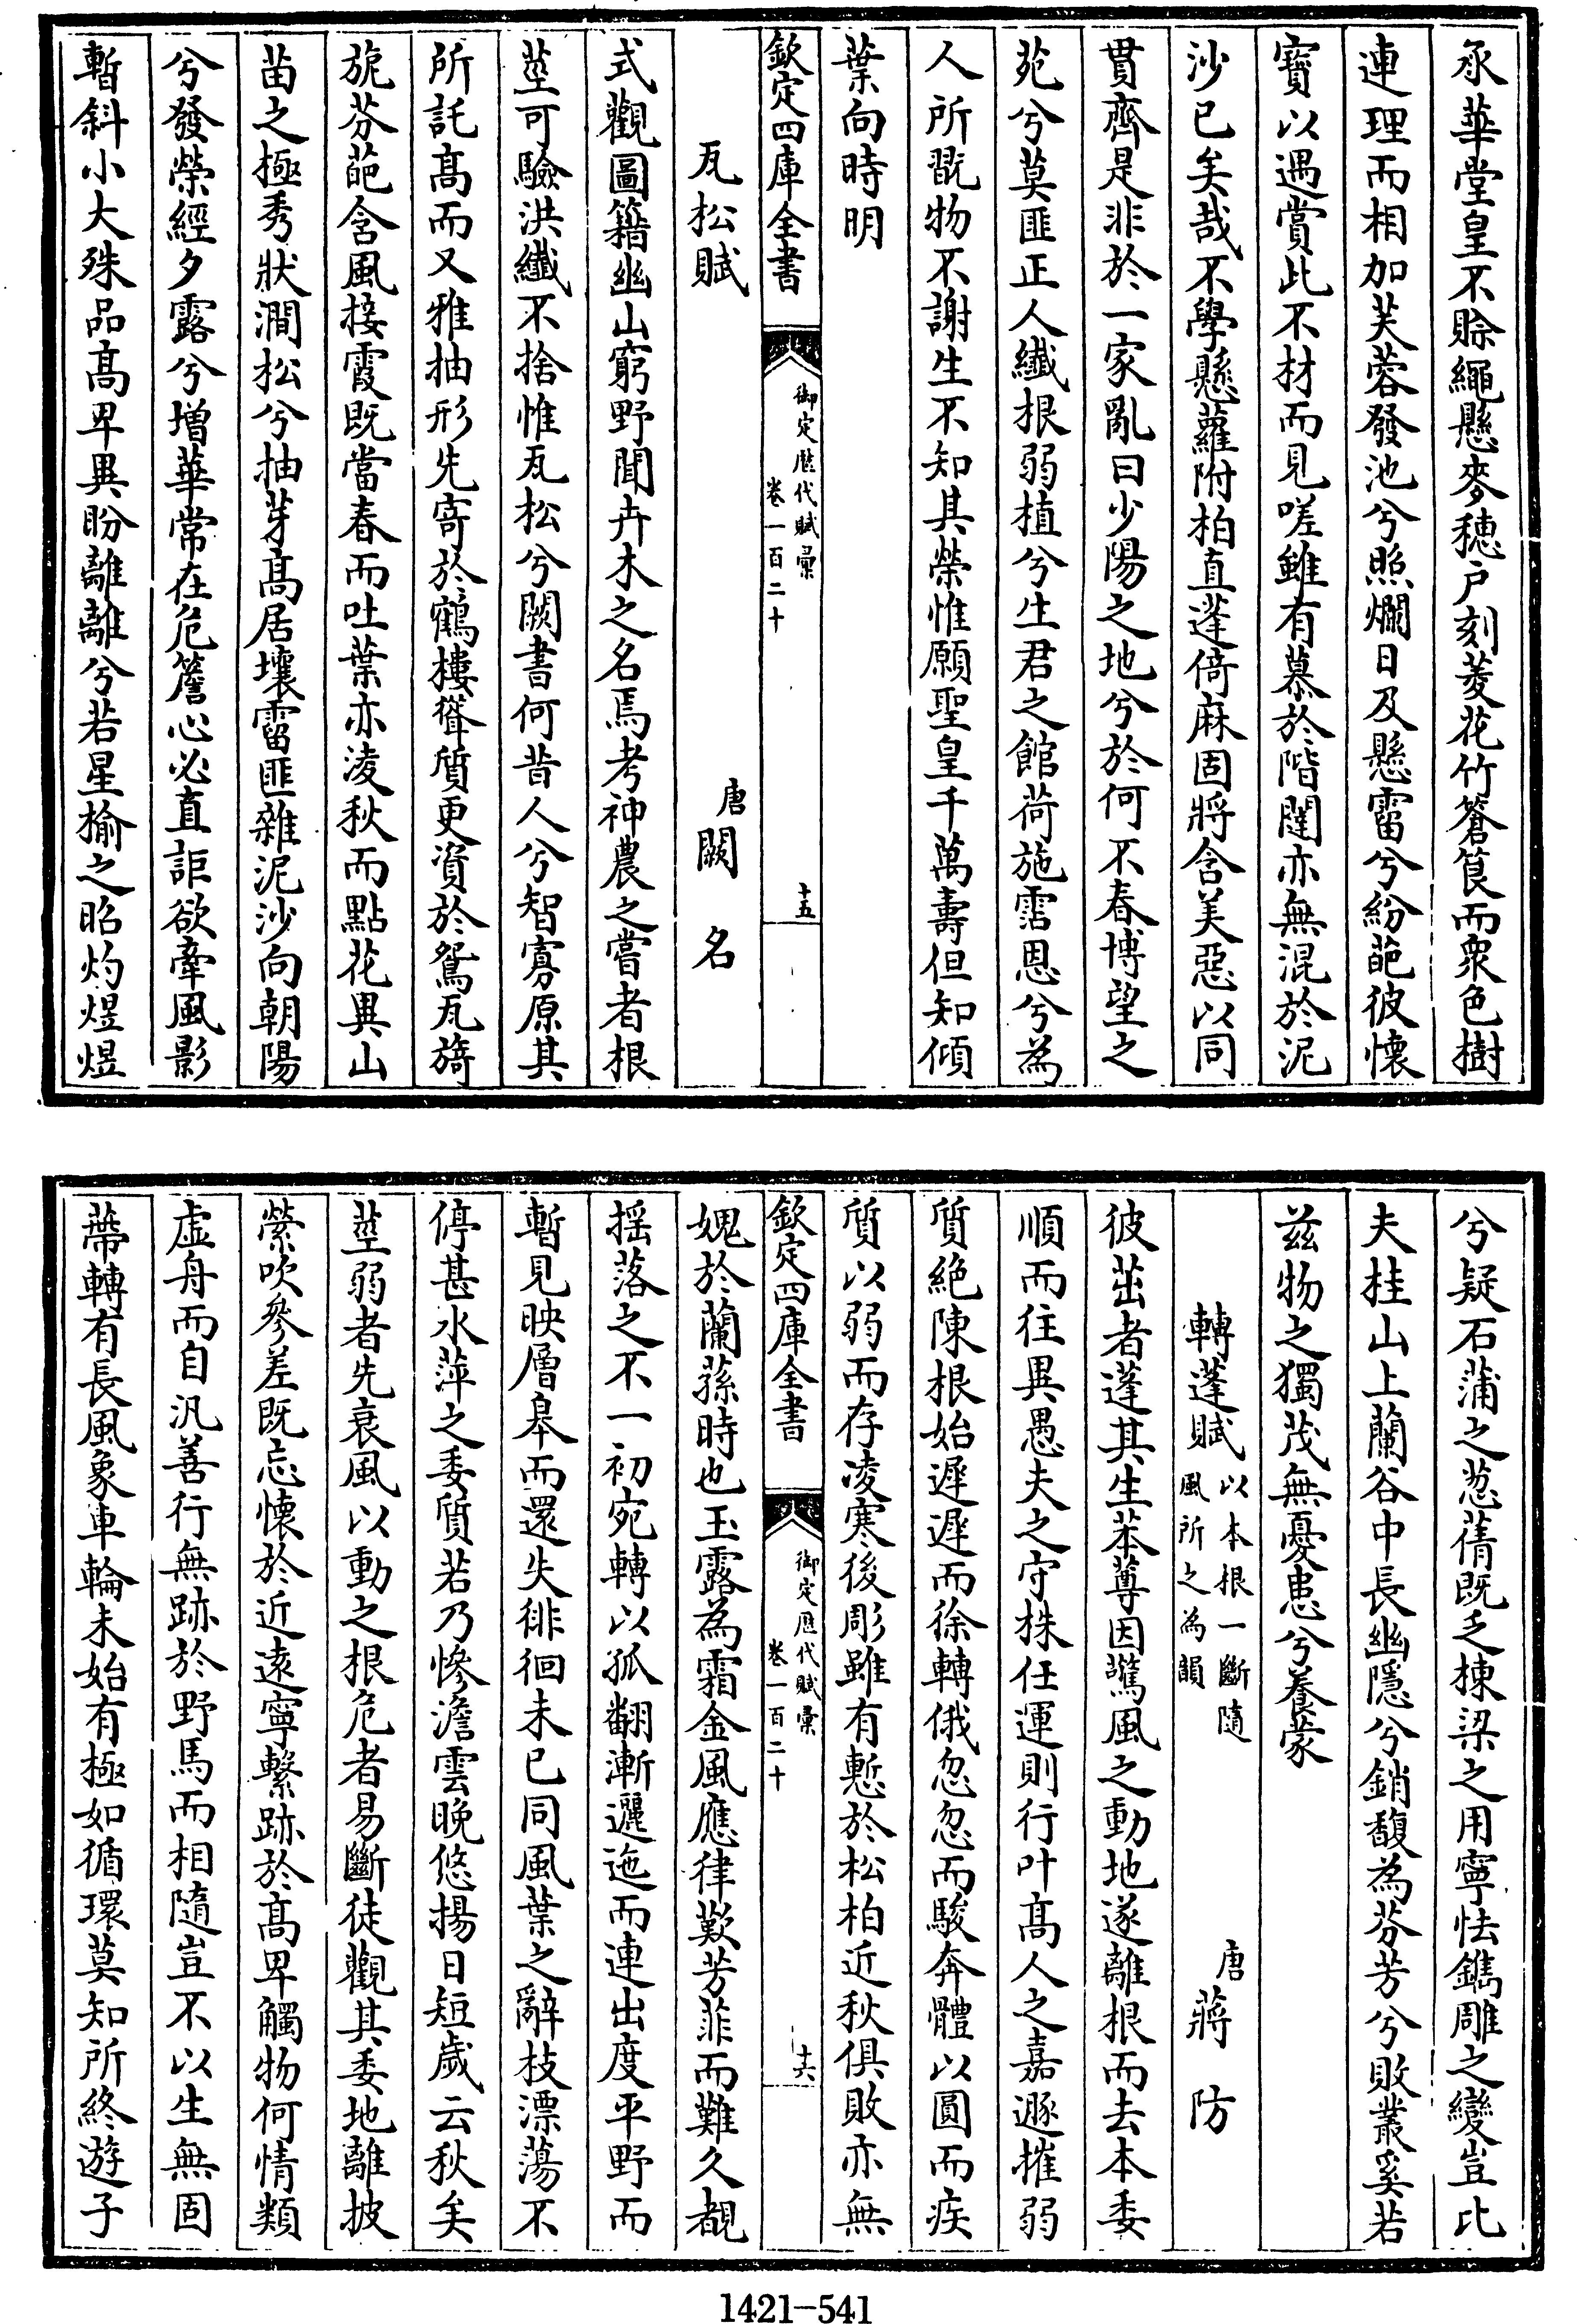 承華堂皇不賒繩懸麥穗户刻菱花竹簽筤而衆色樹
連理而相加芙蓉發池兮照爛日及懸霤兮紛葩彼懷
寶以遇賞此不材而見嗟雖有慕於階闥亦無混於泥
沙已矣哉不學懸蘿附柏直蓬倚麻固將含美惡以同
貫齊是非於一家亂曰少陽之地兮於何不春博望之
苑兮莫匪正人纖根弱植兮生君之館荷施霑恩兮為
人所翫物不謝生不知其榮惟願聖皇千萬壽但知傾
葉向時明
欽定四庫全書
御定歴代賦彙
卷一百二十
十五
瓦松賦
唐闕名
式觀圖籍幽山窮野聞卉木之名焉考神農之嘗者根
莖可驗洪纖不捨惟瓦松兮闕書何昔人兮智寡原其
所託高而又雅抽形先寄於鶴樓聳質更資於鴛瓦旖
旎芬葩含風接霞既當春而吐葉亦淩秋而點花異山
苗之極秀狀澗松兮抽芽高居壤霤匪雜泥沙向朝陽
兮發榮經夕露兮增華常在危簷心必直詎欲牽風影
暫斜小大殊品高卑異盼離離兮若星榆之昭灼煜煜
兮疑石蒲之葱蒨既乏棟梁之用寧怯鐫雕之變豈比
夫桂山上蘭谷中長幽隱兮銷馥為芬芳兮敗叢奚若
兹物之獨茂無憂患兮養蒙
轉蓬賦
以本根一斷隨
風所之為韻
唐蔣防
彼茁者蓬其生苯䔿因驚風之動地遂離根而去本委
順而往異愚夫之守株任運則行叶高人之嘉遯摧弱
質絶陳根始遲遲而徐轉俄忽忽而駿奔體以圓而疾
質以弱而存凌寒後彫雖有慙於松柏近秋俱敗亦無
欽定四庫全書
御定歴代賦彙
卷一百二十
十六
媿於蘭蓀時也玉露為霜金風應律歎芳菲而難久覩
揺落之不一初宛轉以孤翻漸邐迤而連出度平野而
暫見映層皋而還失徘徊未已同風葉之辭枝漂蕩不
停甚水萍之委質若乃慘澹雲晚悠揚日短歲云秋矣
莖弱者先衰風以動之根危者易斷徒觀其委地離披
縈吹參差既忘懷於近遠寧繫跡於高卑觸物何情類
虚舟而自汎善行無跡於野馬而相隨豈不以生無固
蔕轉有長風象車輪未始有極如循環莫知所終遊子
1421-541